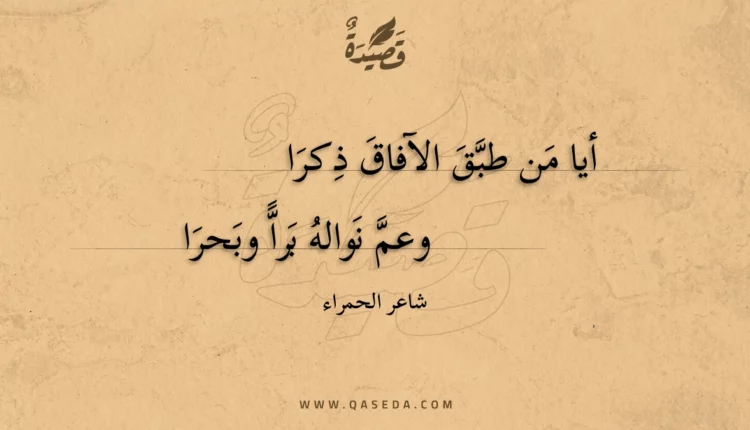 قَصِيدَةٌ
أيا مَن طبَّقَ الآفاقَ ذِكرَا
وعمَّ نَوالهُ بَراًّ وبَحرَا
شاعر الحمراء
WWW.QASEDA.COM